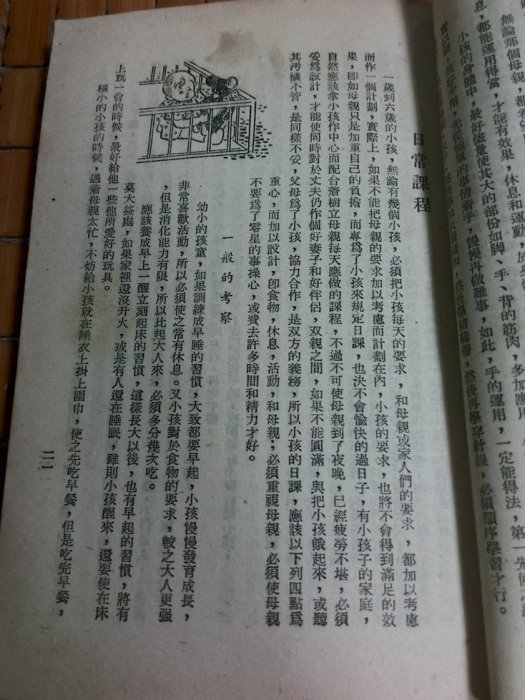 無論那個母親，都
息，都能運用得當，才能有效果，休息和運動，
小孩的身體中，最好盡量使其大的部份如腳、手、背的筋肉，多加
慢慢再做難事，如此，手的運用，一定能得法，第一先
然後再學穿針線，必須順序學習才行。
日常課程
一歲到六歲的小孩，無論有幾個小孩，必須把小孩每天的要求，和母親或家人們的要求，都加以考慮
而作一個計劃，實際上，如果不能把母親的要求加以考慮而計劃在內，小孩的要求，也將不會得到滿足的效
果，即如母親只是加重自己的負擔，而專爲了小孩來規定日課，也決不會愉快的過日子，有小孩子的家庭，
自然應該拿小孩作中心而配合着樹立母親每天應做的課程，不過不可使母親到了夜晚，已經疲勞不堪，必須
妥爲設計，才能使同時對於丈夫仍作個好妻子和好伴侶，双親之間，如果不能圓滿，與把小孩餓起來，或聽
其汚穢不管，是同樣不妥，父母爲了小孩，協力合作，是双方的義務，所以小孩的日課，應該以下列四點爲
重心，而加以設計，卽食物，休息，活動，和母親；必須重視母親，必須使母親
不要爲了零星的事操心，或費去許多時間和精力才好。
一般的考察
幼小的孩童，如果訓練成早睡的習慣，大致都要早起，小孩慢慢發育成長，
非常喜歡活動，所以必須使之常有休息。又小孩對於食物的要求，較之大人更强
，但是消化能力有限，所以比起大人來，必須多分幾次吃。
應該養成早上一醒立刻起床的習慣，這樣長大以後，也有早起的習慣，將有
莫大益處，如果家裡還沒升火，或是有人還在睡眠，雖則小孩醒來，還要使在床
上玩一會的時候，最好給他一些他所愛好的玩具。
極小的小孩的時候，遇着母親太忙，不妨給小孩就在睡衣上掛上圍巾，使之先吃早餐，但是吃完早餐，
二一